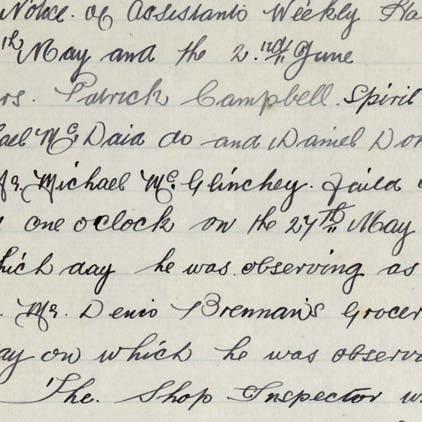 Notice. of Assistants Weekly Ha
th May and the 2.nd June
rs. Patrick Campbell. Spirit
ael Mc.Daid do and Daniel Don
Mr. Michael Mc.Glinchey. faild
one oclock on the 27th May
which day he was observing as
. Mr. Denis Brennan's Grocer
ay on which he was observ
The. Shop Inspector w